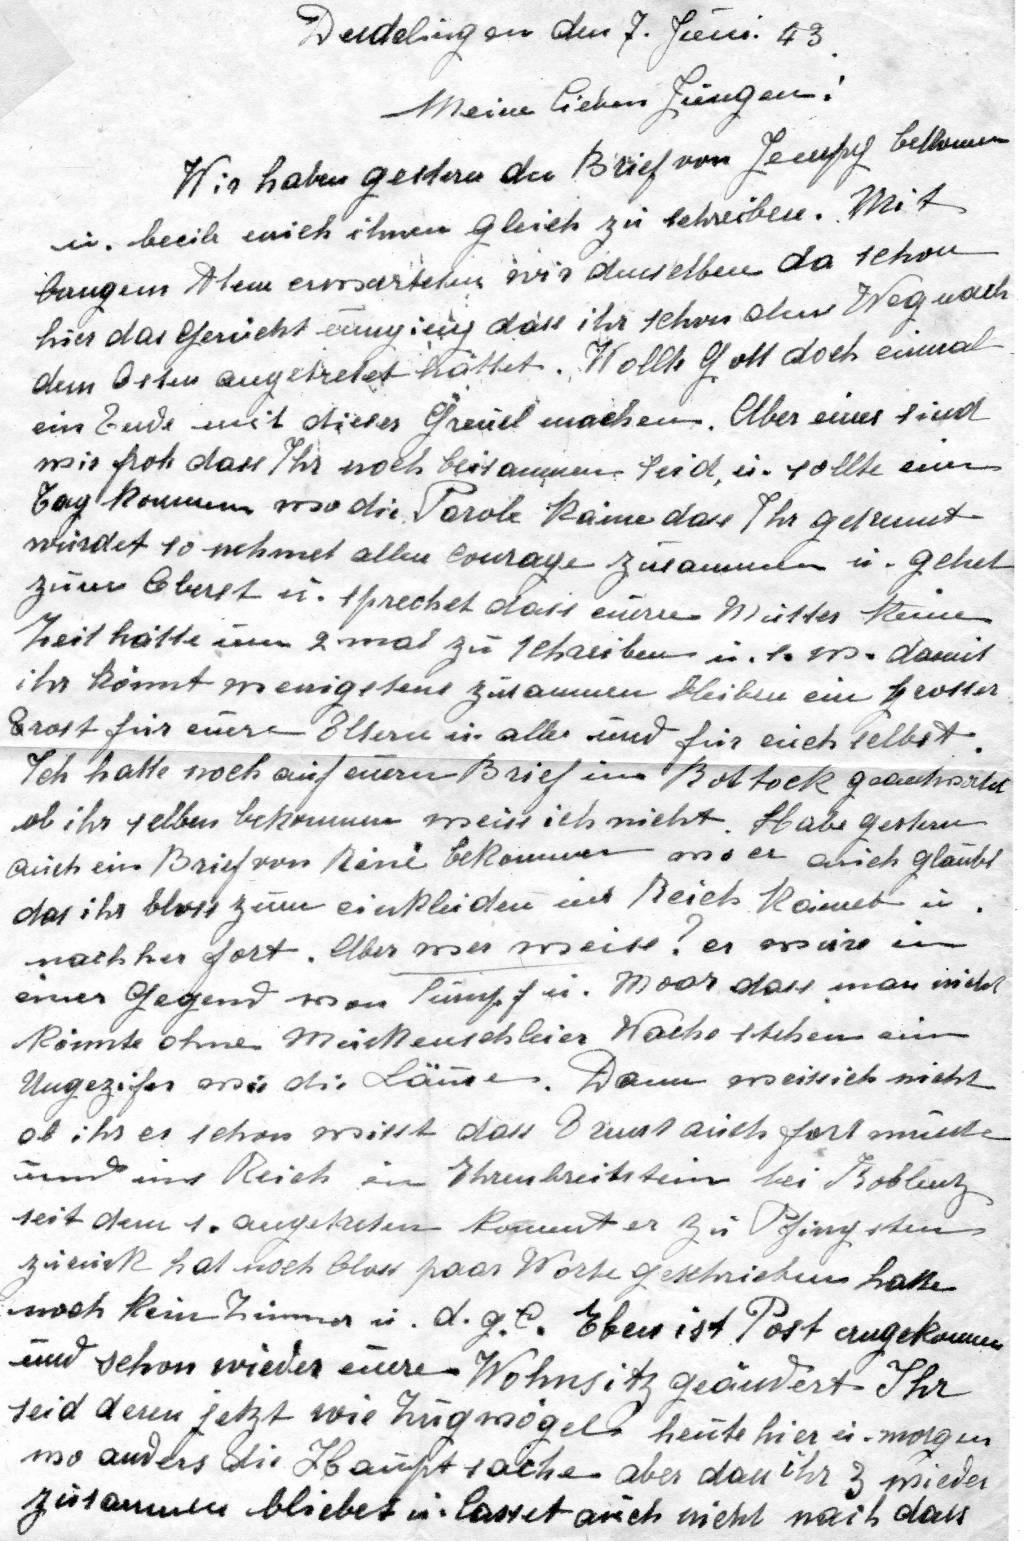 Deudelingen den 7. Juni. 43.
Meine lieben Jungen!
Wir haben gestern den Brief von Jempy bekommen
u. beeile mich ihnen gleich zu schreiben. Mit
bangem Atem erwarteten wir denselben da schon
hier das Gerücht umging dass ihr schon den Weg nach
dem Osten angetretet hättet. Wollte Gott doch einmal
ein Ende mit dieser Greuel machen. Aber eines sind
wir froh dass Ihr noch beisammen seid, u. sollte ein
Tag kommen wo die Parole käme dass Ihr getrennt
würdet so nehmet allen courage zusammen u. gehet
zum Oberst u. sprechet dass eure Mutter keine
Zeit hätte um 2 mal zu schreiben u. s. w. damit
ihr könnt wenigstens zusammen bleiben ein grosser
Trost für eure Eltern u alle und für euch selbst.
Ich hatte noch auf euern Brief in Rostock geantwortet
ob ihr selben bekommen weiss ich nicht. Habe gestern
auch ein Brief von Réné bekommen wo er auch glaubt
das ihr bloss zum einkleiden ins Reich kämet u.
nachher fort. Aber wer weiss? er wäre in
einer Gegend von Sumpf u. Moor dass man nicht
könnte ohne Mückenschleier Wache stehen ein
Ungezifer wie die Läuse. Dann weiss ich nicht
ob ihr es schon wisst dass Ernest auch fort musste
und ins Reich in Ehrenbreitstein bei Koblenz
seit dem 1. angetreten kommt er zu Pfingsten
zurück hat noch bloss paar Worte geschrieben hatte
noch kein Zimmer u. d. g. l. Eben ist Post angekommen
und schon wieder eure Wohnsitz geändert Ihr
seid deren jetzt wie Zugvögel heute hier u. morgen
wo anders die Hauptsache aber dass ihr 3 wieder
zusammen bliebet u. lasset auch nicht nach dass